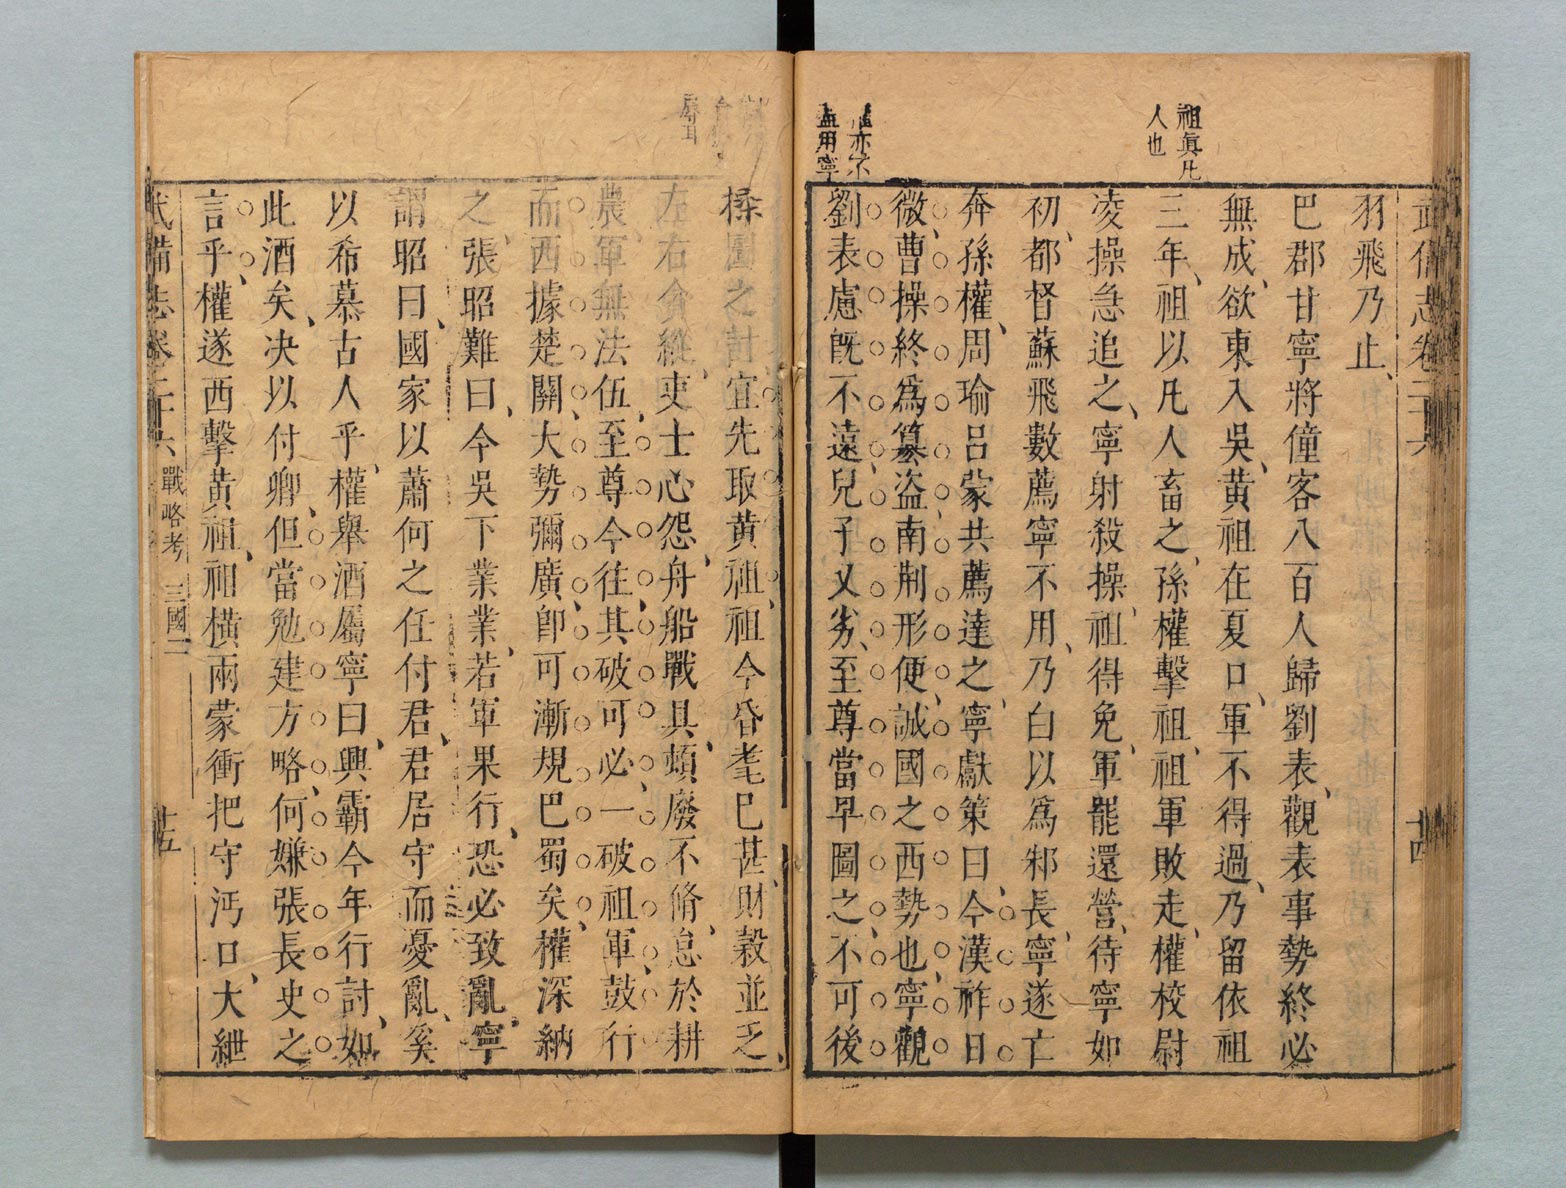 祖眞凡
人也
亦不
用寧
武備志卷二十六
十四
羽飛乃止
巴郡甘寧將僮客八百人歸劉表觀表事勢終必
無成欲東入吳黃祖在夏口軍不得過乃留依祖
三年祖以凡人畜之孫權擊祖祖軍敗走權校尉
凌操急追之寧射殺操祖得免軍罷還營待寧如
初都督蘇飛數薦寧不用乃白以爲邾長寧遂亡
奔孫權周瑜呂蒙共薦達之寧獻策曰今漢祚日
微曹操終爲篡盜南荊形便誠國之西勢也寧觀
劉表慮旣不遠兒子又劣至尊當早圖之不可後
操圖之計宜先取黃祖祖今昏耄巳甚財穀並乏
左右貪縱吏士心怨舟船戰具頓廢不脩怠於耕
農軍無法伍至尊今往其破可必一破祖軍鼓行
而西據楚關大勢彌廣卽可漸規巴蜀矣權深納
之張昭難曰今吳下業業若軍果行恐必致亂寧
謂昭曰國家以蕭何之任付君君居守而憂亂奚
以希慕古人乎權舉酒屬寧曰興霸今年行討如
此酒矣决以付卿但當勉建方略何嫌張長史之
言乎權遂西擊黃祖祖橫兩蒙衝把守沔口大紲
武備志卷二十六 戰略考 三國二
十五